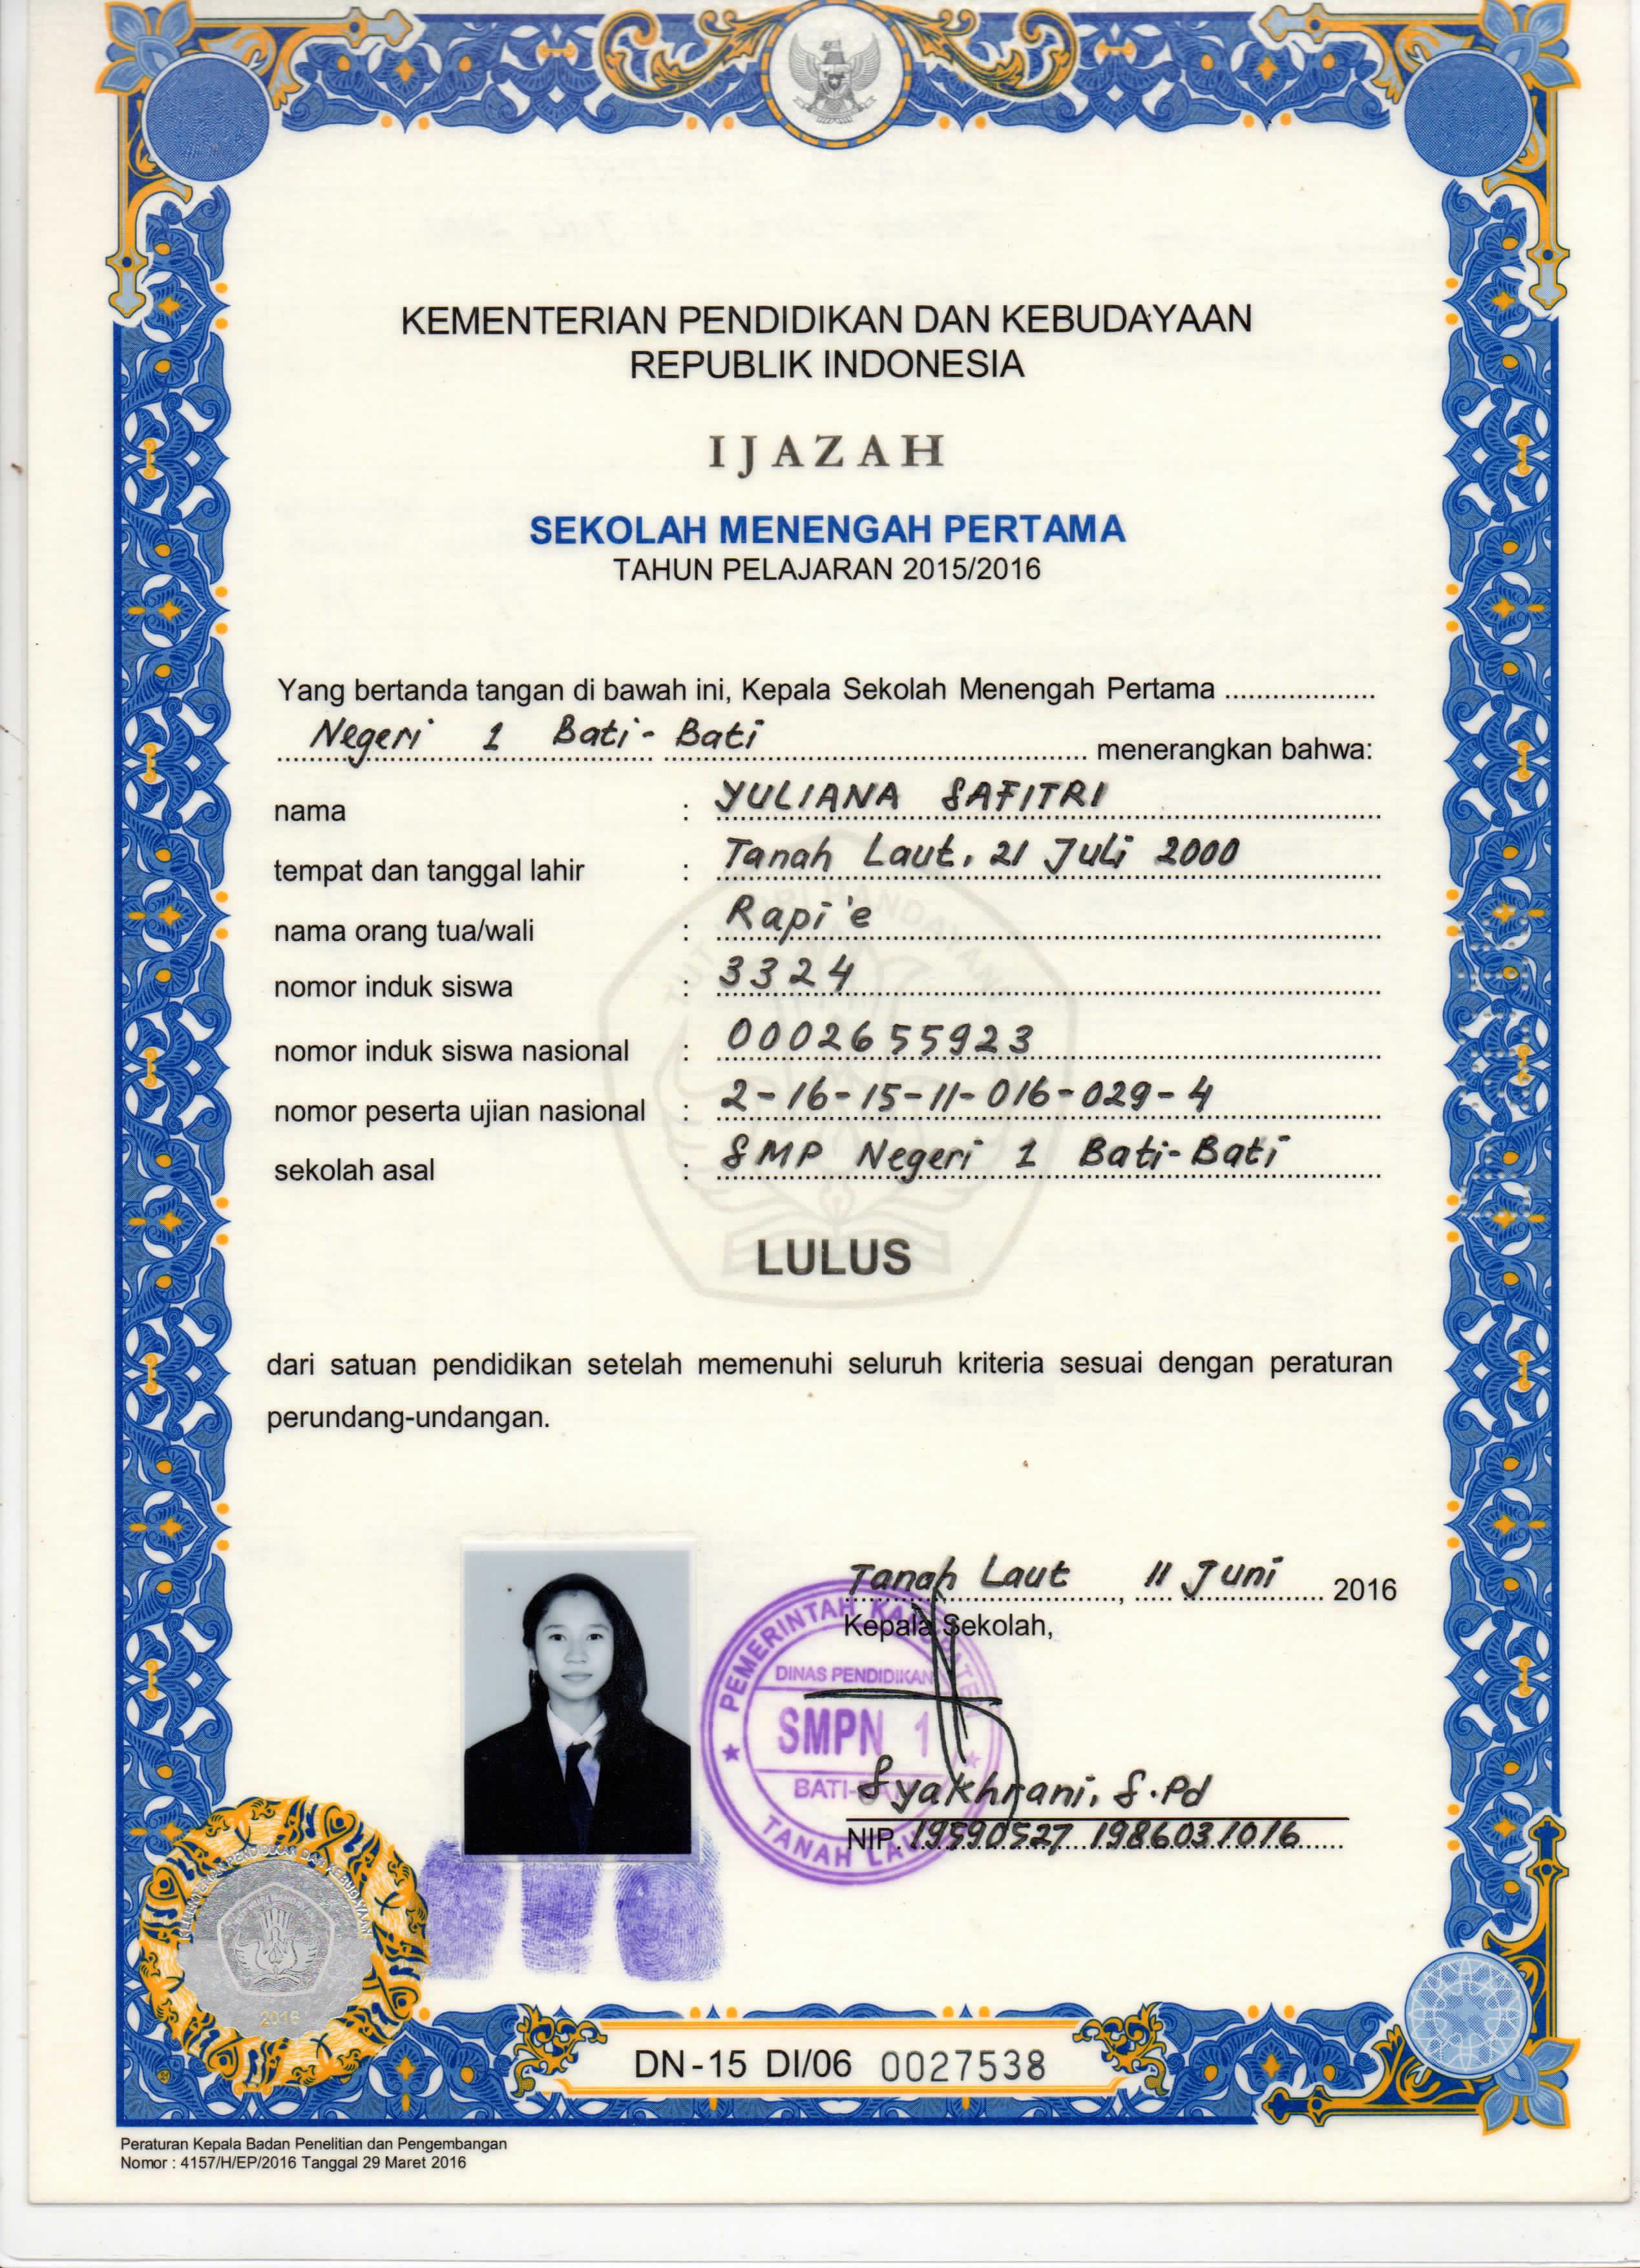 KEMENTERIAN PENDIDIKAN DAN KEBUDAYAAN
REPUBLIK INDONESIA
IJAZAH
SEKOLAH MENENGAH PERTAMA
TAHUN PELAJARAN 2015/2016
Yang bertanda tangan di bawah ini, Kepala Sekolah Menengah Pertama ...................
Negeri 1 Bati-Bati menerangkan bahwa:
nama : YULIANA SAFITRI
tempat dan tanggal lahir : Tanah Laut, 21 Juli 2000
nama orang tua/wali : Rapi'e
nomor induk siswa : 3324
nomor induk siswa nasional : 0002655923
nomor peserta ujian nasional : 2-16-15-11-016-029-4
sekolah asal : SMP Negeri 1 Bati-Bati
TUT WURI HANDAYANI
LULUS
dari satuan pendidikan setelah memenuhi seluruh kriteria sesuai dengan peraturan
perundang-undangan.
Tanah Laut, 11 Juni 2016
Kepala Sekolah,
PEMERINTAH KABUPATEN
DINAS PENDIDIKAN
SMPN 1
BATI-BATI
TANAH LAUT
Syakhrani, S.Pd
NIP. 19590527 1986031016
KEMENTERIAN PENDIDIKAN DAN KEBUDAYAAN
2016
DN-15 DI/06 0027538
Peraturan Kepala Badan Penelitian dan Pengembangan
Nomor : 4157/H/EP/2016 Tanggal 29 Maret 2016